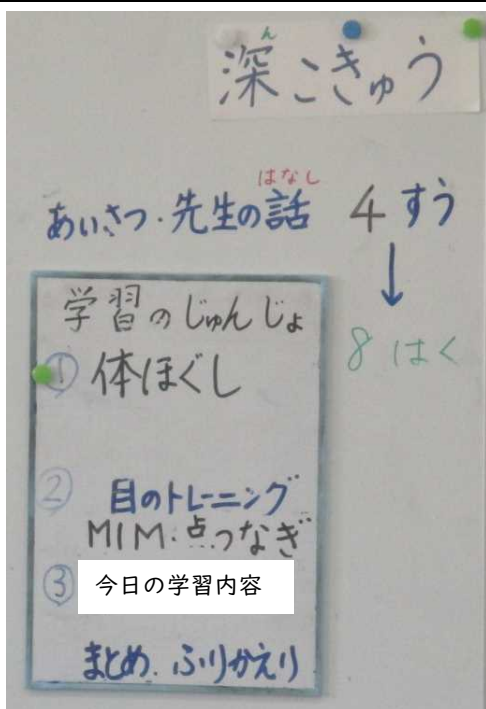 ん
深こきゅう
はなし
あいさつ・先生の話 4 すう
↓
8 はく
学習のじゅんじょ
① 体ほぐし
② 目のトレーニング
MIM・点つなぎ
③ 今日の学習内容
まとめ・ふりかえり